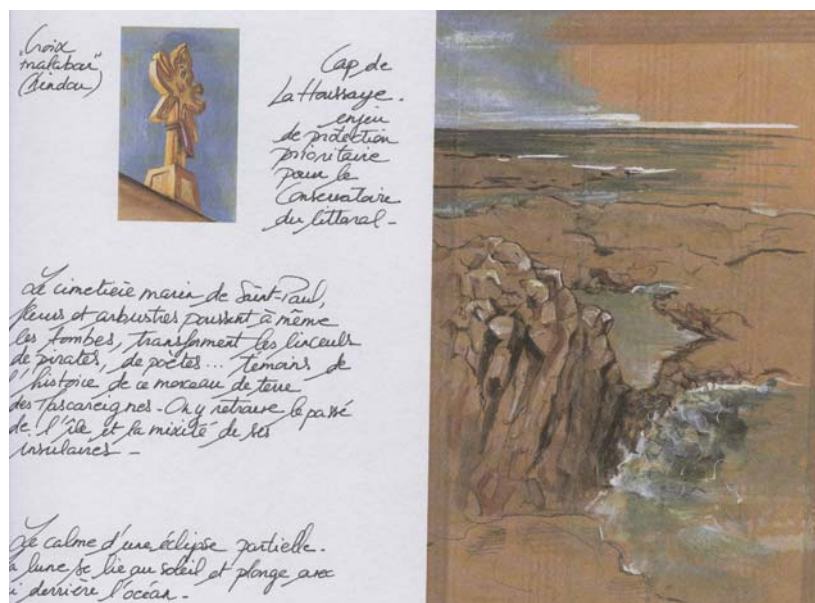 "Croix
malabar"
(hindou)
Cap de
La Houssaye.
enjeu
de protection
prioritaire
pour le
Conservatoire
du littoral -
Le cimetière marin de Saint-Paul,
fleurs et arbustres poussent à même
les tombes, transforment les linceuls
de pirates, de poètes... témoins de
l'histoire de ce morceau de terre
des Mascareignes - On y retrouve le passé
de l'île et la mixité de ses
insulaires -
Le calme d'une éclipse partielle.
la lune se lie au soleil et plonge avec
lui derrière l'océan -